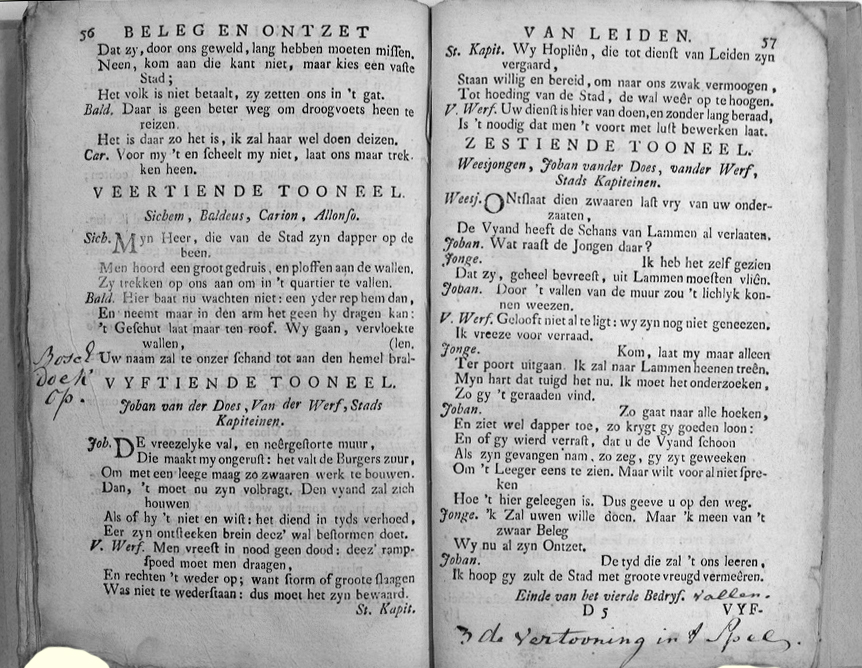 56 BELEG EN ONTZET
Dat zy, door ons geweld, lang hebben moeten missen.
Neen, kom aan die kant niet, maar kies een vaste
Stad;
Het volk is niet betaalt, zy zetten ons in 't gat.
Bald. Daar is geen beter weg om droogvoets heen te
reizen.
Het is daar zo het is, ik zal haar wel doen deizen.
Car. Voor my 't en scheelt my niet, laat ons maar trek-
ken heen.
VEERTIENDE TOONEEL.
Sichem, Baldeus, Carion, Allonso.
Sich. Myn Heer, die van de Stad zyn dapper op de
been.
Men hoord een groot gedruis, en ploffen aan de wallen.
Zy trekken op ons aan om in 't quartier te vallen.
Bald. Hier baat nu wachten niet: een yder rep hem dan,
En neemt maar in den arm het geen hy dragen kan:
't Geschut laat maar ten roof. Wy gaan, vervloekte
wallen, (len.
Uw naam zal te onzer schand tot aan den hemel bral-
Bosch
doek
op.
VYFTIENDE TOONEEL.
Johan van der Does, Van der Werf, Stads
Kapiteinen.
Joh. DE vreezelyke val, en neêrgestorte muur,
Die maakt my ongerust: het valt de Burgers zuur,
Om met een leege maag zo zwaaren werk te bouwen.
Dan, 't moet nu zyn volbragt. Den vyand zal zich
houwen
Als of hy 't niet en wist: het diend in tyds verhoed,
Eer zyn ontsteeken brein deez' wal bestormen doet.
V. Werf. Men vreest in nood geen dood: deez' ramp-
spoed moet men draagen,
En rechten 't weder op; want storm of groote slaagen
Was niet te wederstaan: dus moet het zyn bewaard.
St. Kapit.
VAN LEIDEN. 57
St. Kapit. Wy Hopliên, die tot dienst van Leiden zyn
vergaard,
Staan willig en bereid, om naar ons zwak vermoogen,
Tot hoeding van de Stad, de wal weêr op te hoogen.
V. Werf. Uw dienst is hier van doen, en zonder lang beraad,
Is 't noodig dat men 't voort met lust bewerken laat.
ZESTIENDE TOONEEL.
Weesjongen, Johan vander Does, vander Werf,
Stads Kapiteinen.
Weesj. ONtslaat dien zwaaren last vry van uw onder-
zaaten,
De Vyand heeft de Schans van Lammen al verlaaten.
Johan. Wat raast de Jongen daar?
Jonge. Ik heb het zelf gezien
Dat zy, geheel bevreest, uit Lammen moesten vliên.
Johan. Door 't vallen van de muur zou 't lichlyk kon-
nen weezen.
V. Werf. Gelooft niet al te ligt: wy zyn nog niet geneezen.
Ik vreeze voor verraad.
Jonge. Kom, laat my maar alleen
Ter poort uitgaan. Ik zal naar Lammen heenen treên.
Myn hart dat tuigd het nu. Ik moet het onderzoeken,
Zo gy 't geraaden vind.
Johan. Zo gaat naar alle hoeken,
En ziet wel dapper toe, zo krygt gy goeden loon:
En of gy wierd verrast, dat u de Vyand schoon
Als zyn gevangen nam, zo zeg, gy zyt geweeken
Om 't Leeger eens te zien. Maar wilt voor al niet spre-
ken
Hoe 't hier geleegen is. Dus geeve u op den weg.
Jonge. 'k Zal uwen wille doen. Maar 'k meen van 't
zwaar Beleg
Wy nu al zyn Ontzet.
Johan. De tyd die zal 't ons leeren,
Ik hoop gy zult de Stad met groote vreugd vermeêren.
Einde van het vierde Bedryf. vallen.
D 5 VYF-
3 de vertooning in 't Spel.